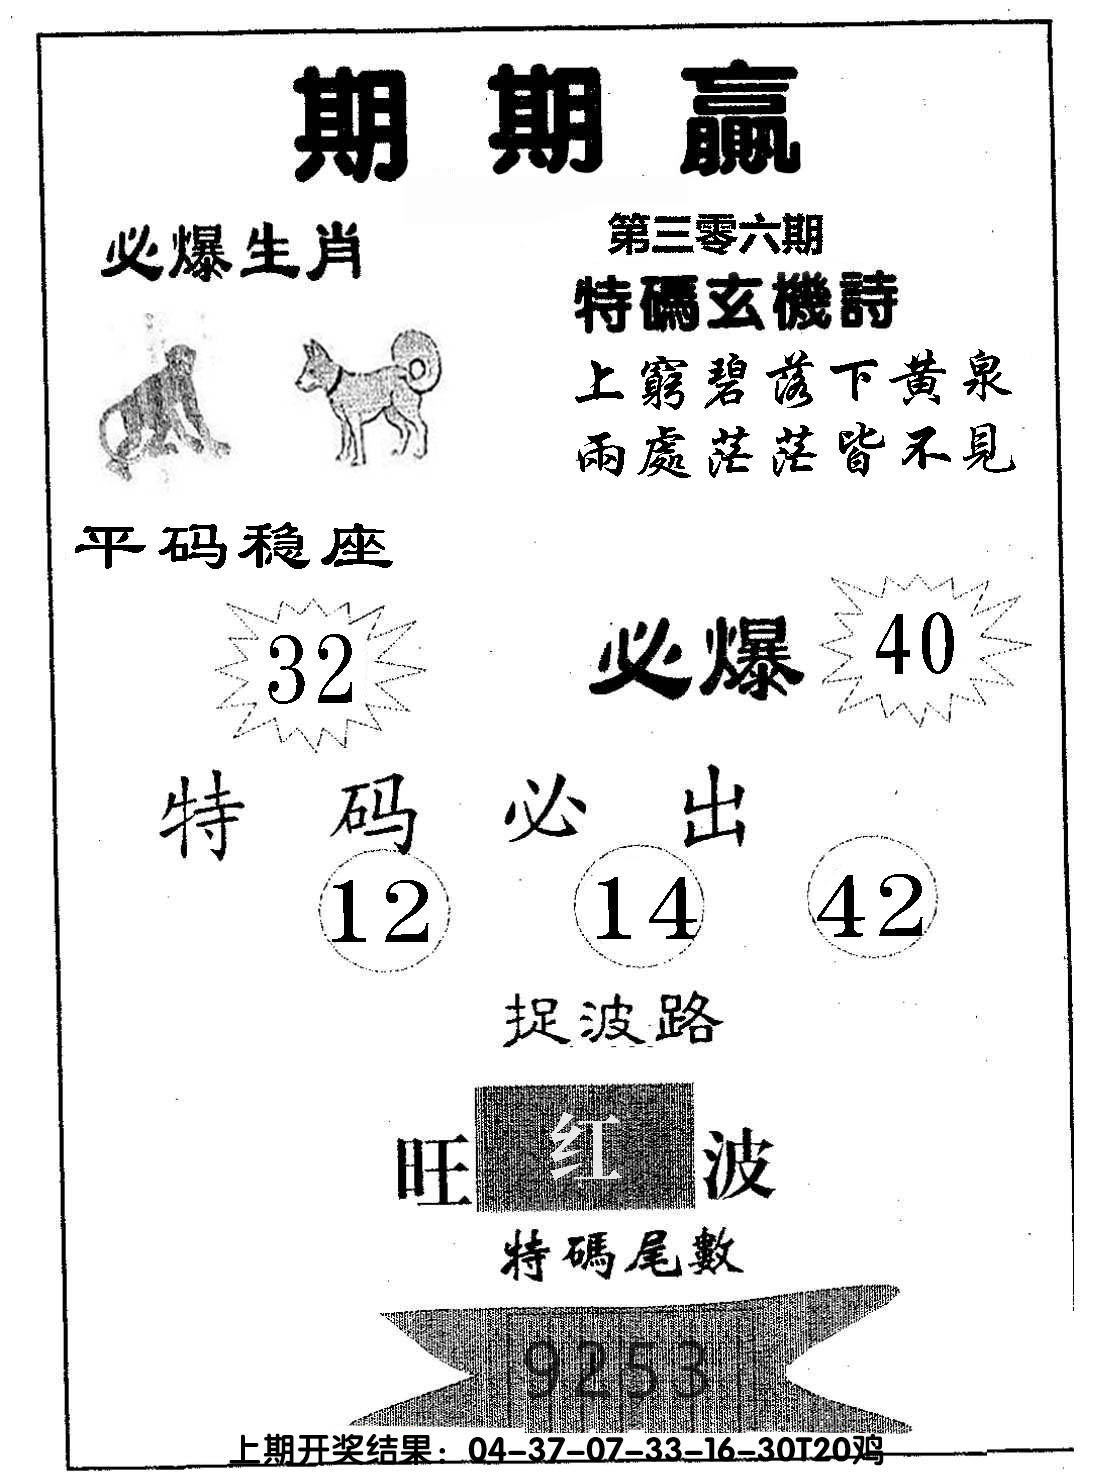 期期赢
必爆生肖
第三零六期
特碼玄機詩
上窮碧落下黄泉
兩處茫茫皆不見
平码稳座
32
必爆 40
特码必出
12 14 42
捉波路
旺红波
特碼尾數
9253
上期开奖结果：04-37-07-33-16-30T20鸡